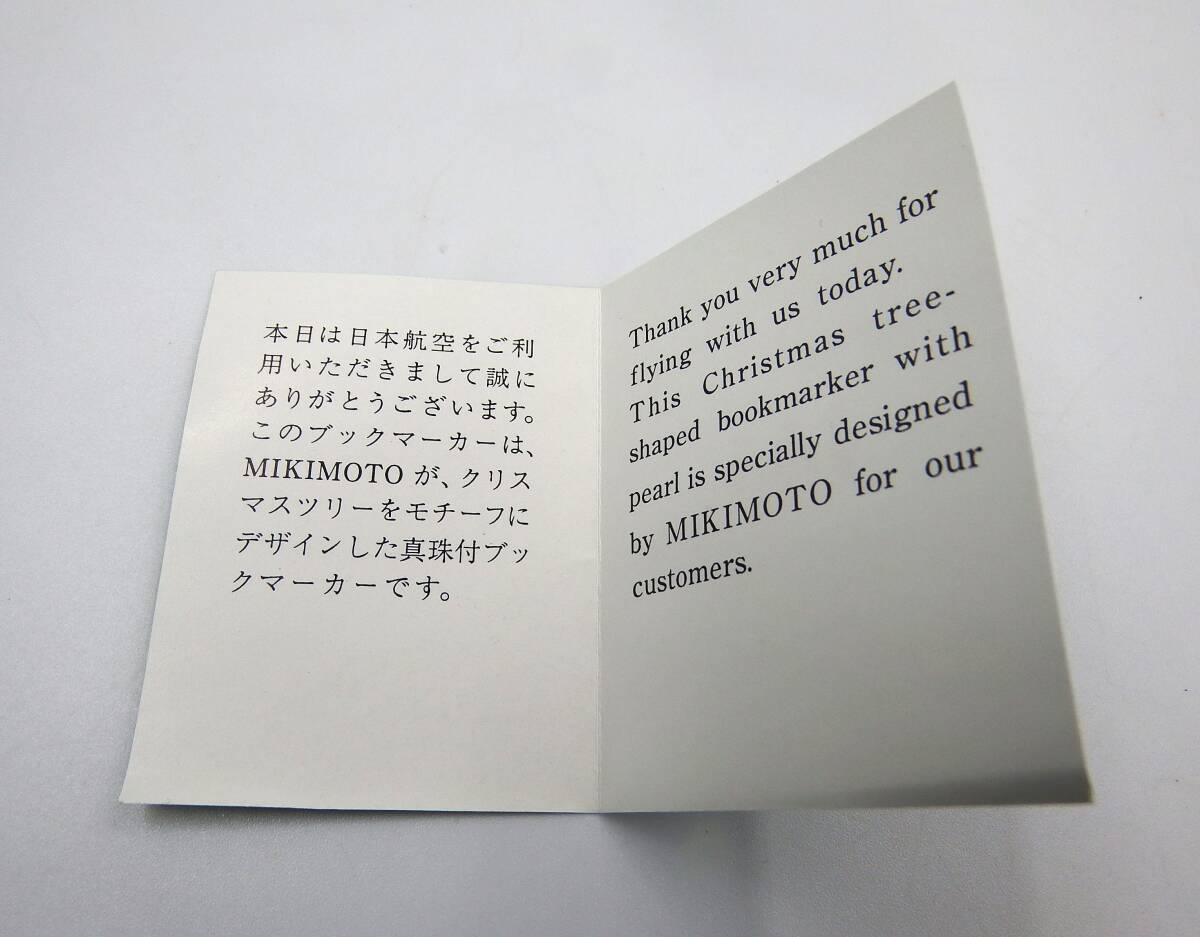 本日は日本航空をご利
用いただきまして誠に
ありがとうございます。
このブックマーカーは、
MIKIMOTO が、クリス
マスツリーをモチーフに
デザインした真珠付ブッ
クマーカーです。
Thank you very much for
flying with us today.
This Christmas tree-
shaped bookmarker with
pearl is specially designed
by MIKIMOTO for our
customers.